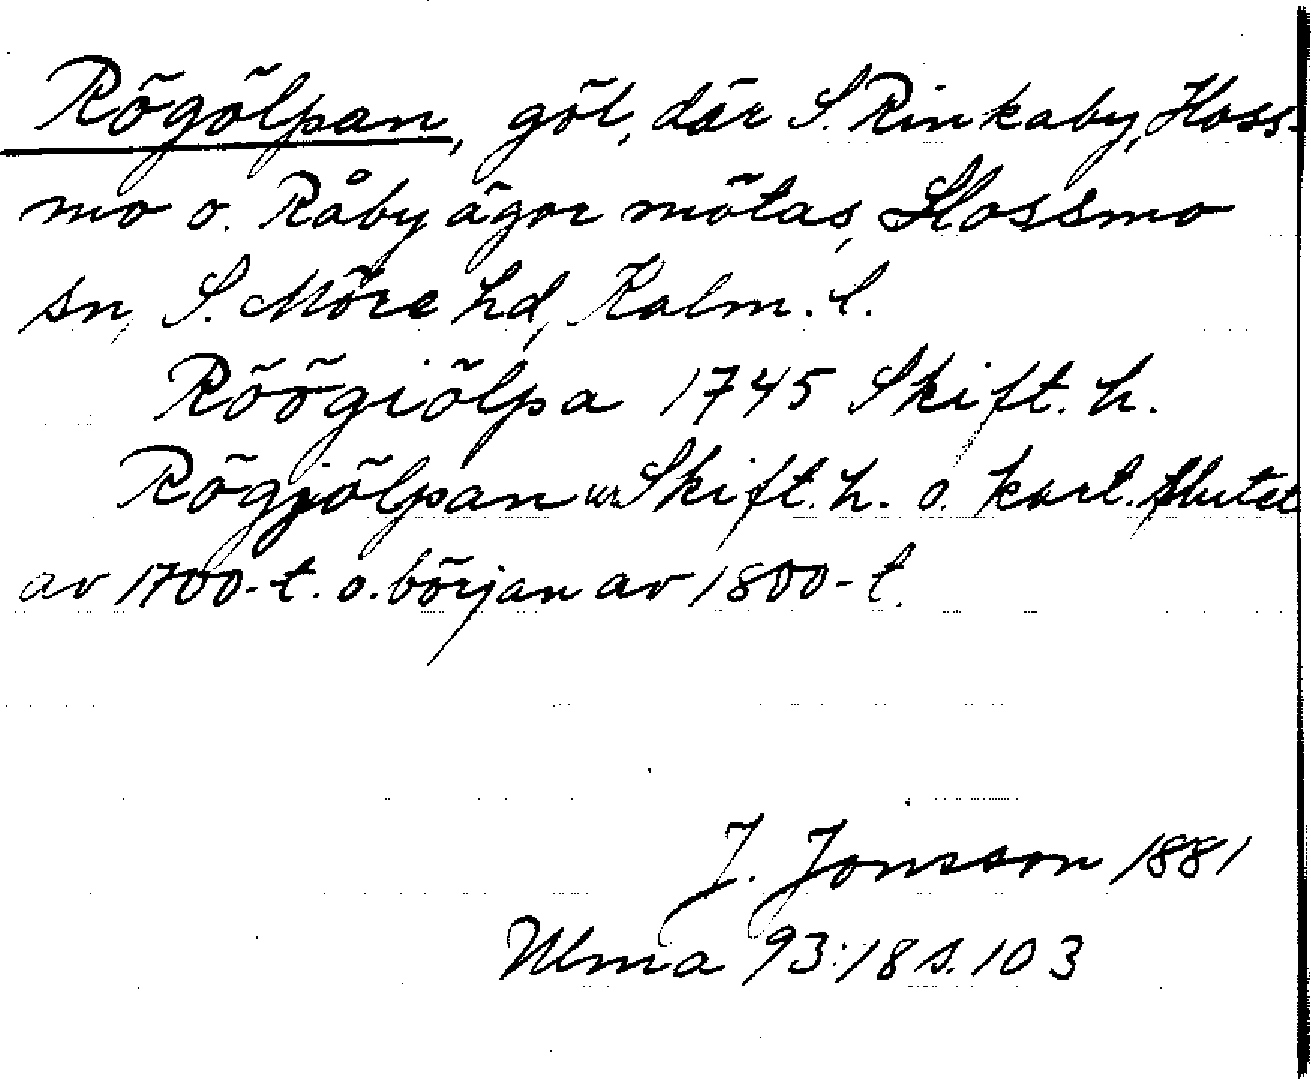 Rögölpan, göl, där S. Rinkaby, Hoss-
mo o. Råby ägor mötas, Hossmo
sn, S. Möre hd, Kalm. l.
Röögiölpa 1745 Skift. h.
Rögjölpan ur Skift. h. o. kart. slutet
av 1700-t. o. början av 1800-t.
J. Jonsson 1881
Ulma 93:18 s. 103